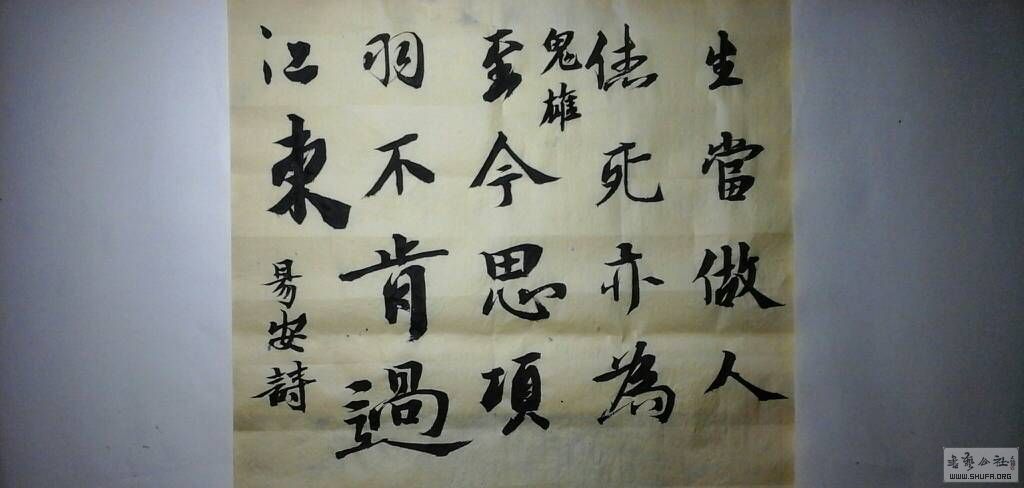 生當做人
傑死亦為
鬼雄
至今思項
羽不肯過
江東
易安詩
书艺公社
WWW.SHUFA.ORG